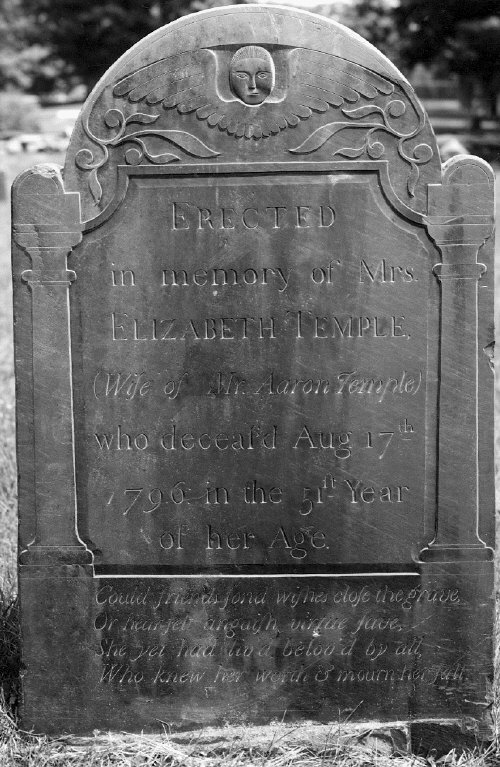 ERECTED
in memory of Mrs.
ELIZABETH TEMPLE,
(Wife of Mr. Aaron Temple)
who deceaſ'd Aug 17th
1796. in the 51ſt Year
of her Age.
Could friends fond wiſhes cloſe the grave,
Or virtue ſave,
She yet had liv'd belov'd by all,
Who knew her worth & mourn her fall.